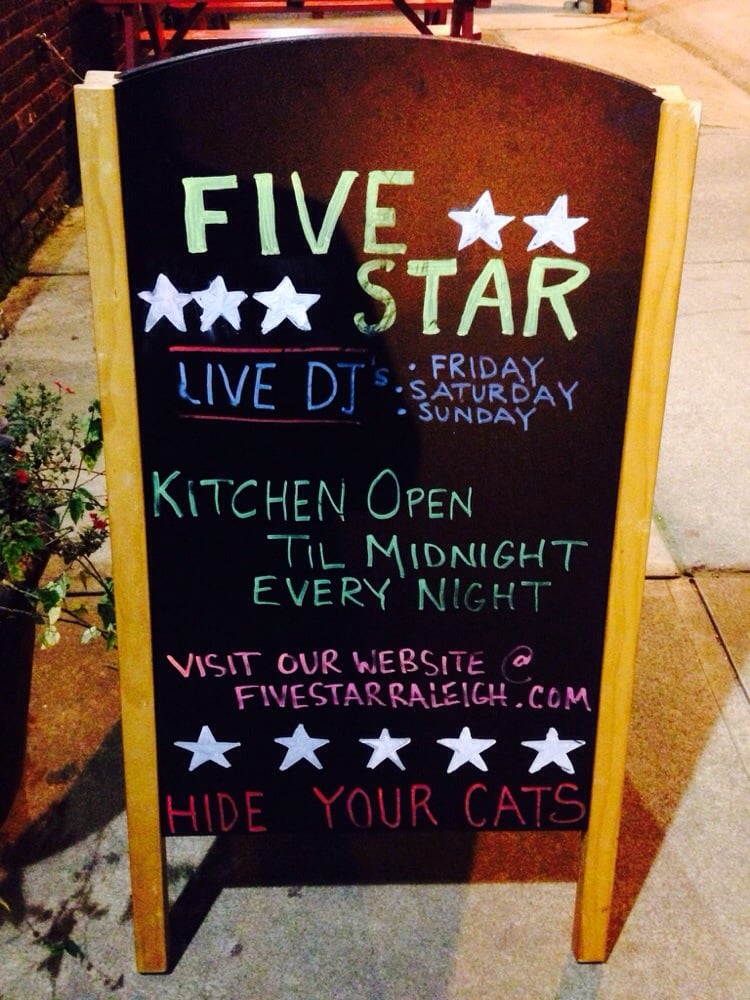 FIVE
STAR
LIVE DJ's
• FRIDAY
• SATURDAY
• SUNDAY
KITCHEN OPEN
TIL MIDNIGHT
EVERY NIGHT
VISIT OUR WEBSITE @
FIVESTARRALEIGH.COM
HIDE YOUR CATS